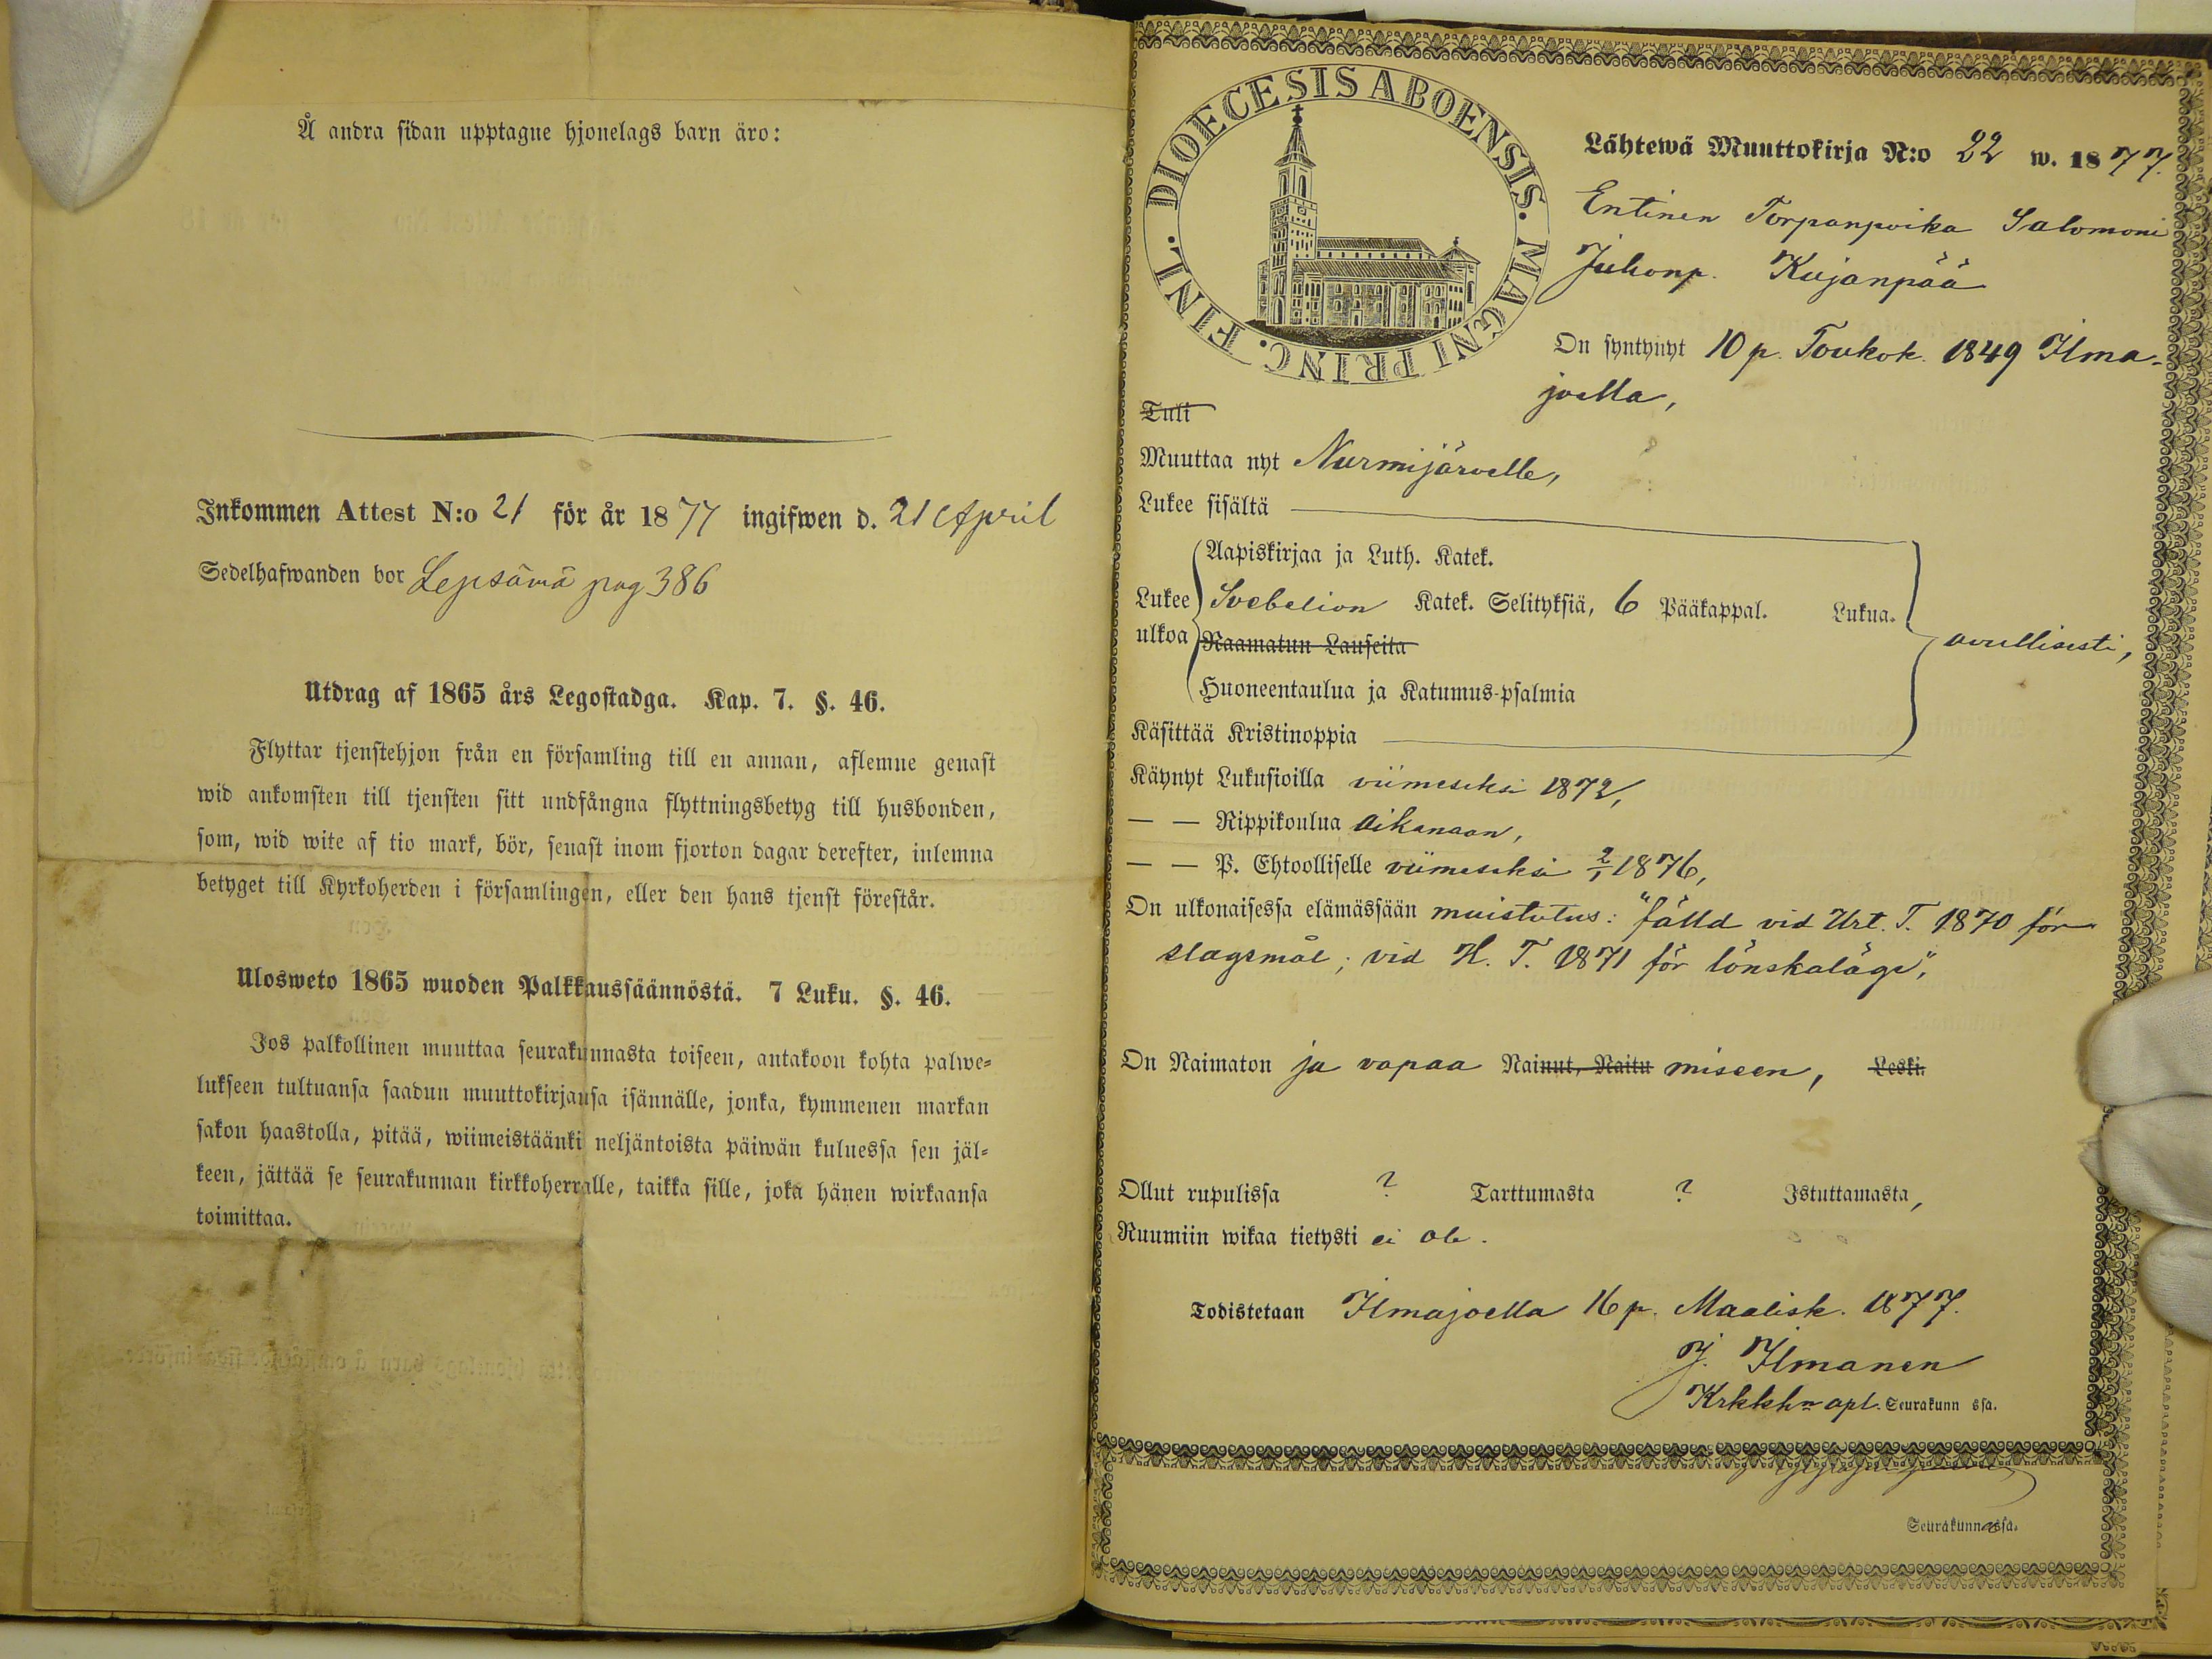 Å andra sidan upptagne hjonelags barn äro:
Inkommen Attest N:o 21 för år 1877 ingifwen d. 21 April
Sedelhafwanden bor Lepsämä pag 386
Utdrag af 1865 års Legostadga. Kap. 7. §. 46.
Flyttar tjenstehjon från en församling till en annan, aflemne genast
wid ankomsten till tjensten sitt undfångna flyttningsbetyg till husbonden,
som, wid wite af tio mark, bör, senast inom fjorton dagar derefter, inlemna
betyget till Kyrkoherden i församlingen, eller den hans tjenst förestår.
Ulosweto 1865 wuoden Palkkaussäännöstä. 7 Luku. §. 46.
Jos palkollinen muuttaa seurakunnasta toiseen, antakoon kohta palwe-
lukseen tultuansa saadun muuttokirjansa isännälle, jonka, kymmenen markan
sakon haastolla, pitää, wiimeistäänki neljäntoista päiwän kuluessa sen jäl-
keen, jättää se seurakunnan kirkkoherralle, taikka sille, joka hänen wirkaansa
toimittaa.
DIOECESIS ABOENSIS. MAGNI PRINC. FINL.
Lähtewä Muuttokirja N:o 22 w. 1877.
Entinen Torpanpoika Salomoni
Juhonp. Kujanpää
On syntynyt 10 p. Toukok. 1849 Ilma-
joella,
Tuli
Muuttaa nyt Nurmijärvelle,
Lukee sisältä
Aapiskirjaa ja Luth. Katek.
Lukee ulkoa Svebelion Katek. Selityksiä, 6 Pääkappal. Lukua.
Raamatun Lauseita
avullisesti,
Huoneentaulua ja Katumus-psalmia
Käsittää Kristinoppia
Käynyt Lukusioilla viimeseksi 1872,
— — Rippikoulua aikanaan,
— — P. Ehtoolliselle viimeseksi 2/1 1876,
On ulkonaisessa elämässään muistutus: "fälld vid Urt. T. 1870 för
slagsmål; vid H. T. 1871 för lönskaläge",
On Naimaton ja vapaa Nainut, Naitu miseen, Leski.
Ollut rupulissa ? Tarttumasta ? Istuttamasta,
Ruumiin wikaa tietysti ei ole.
Todistetaan Ilmajoella 16 p. Maalisk. 1877.
J. Ilmanen
Krkkhn apl. Seurakunn ssa.
Seurakunnassa.